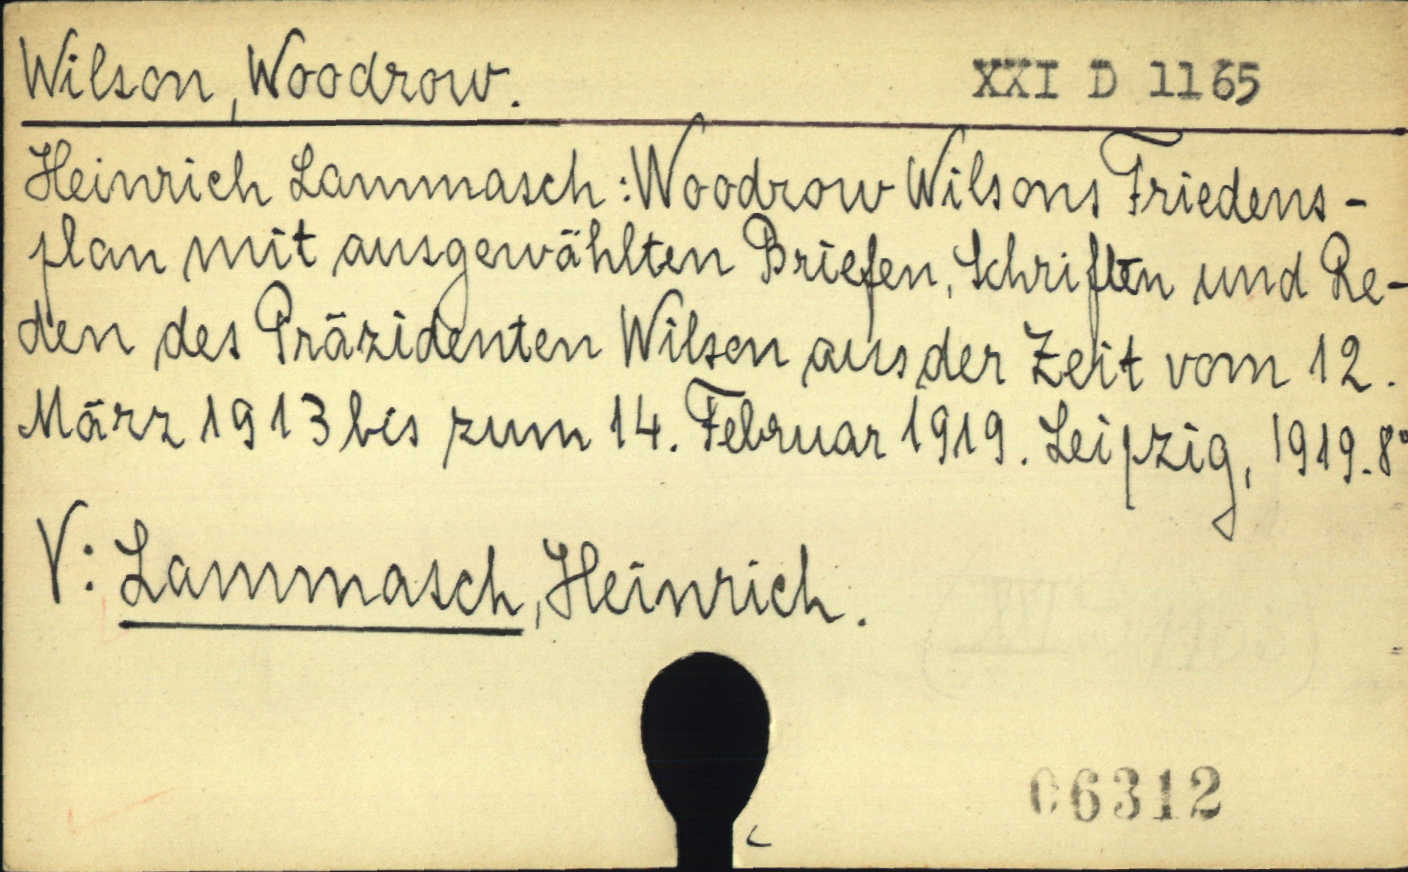 Wilson, Woodrow. XXI D 1165
Heinrich Lammasch: Woodrow Wilsons Friedens-
plan mit ausgewählten Briefen, Schriften und Re-
den des Präzidenten Wilson aus der Zeit vom 12.
März 1913 bis zum 14. Februar 1919. Leipzig, 1919. 8°
V: Lammasch, Heinrich.
06312